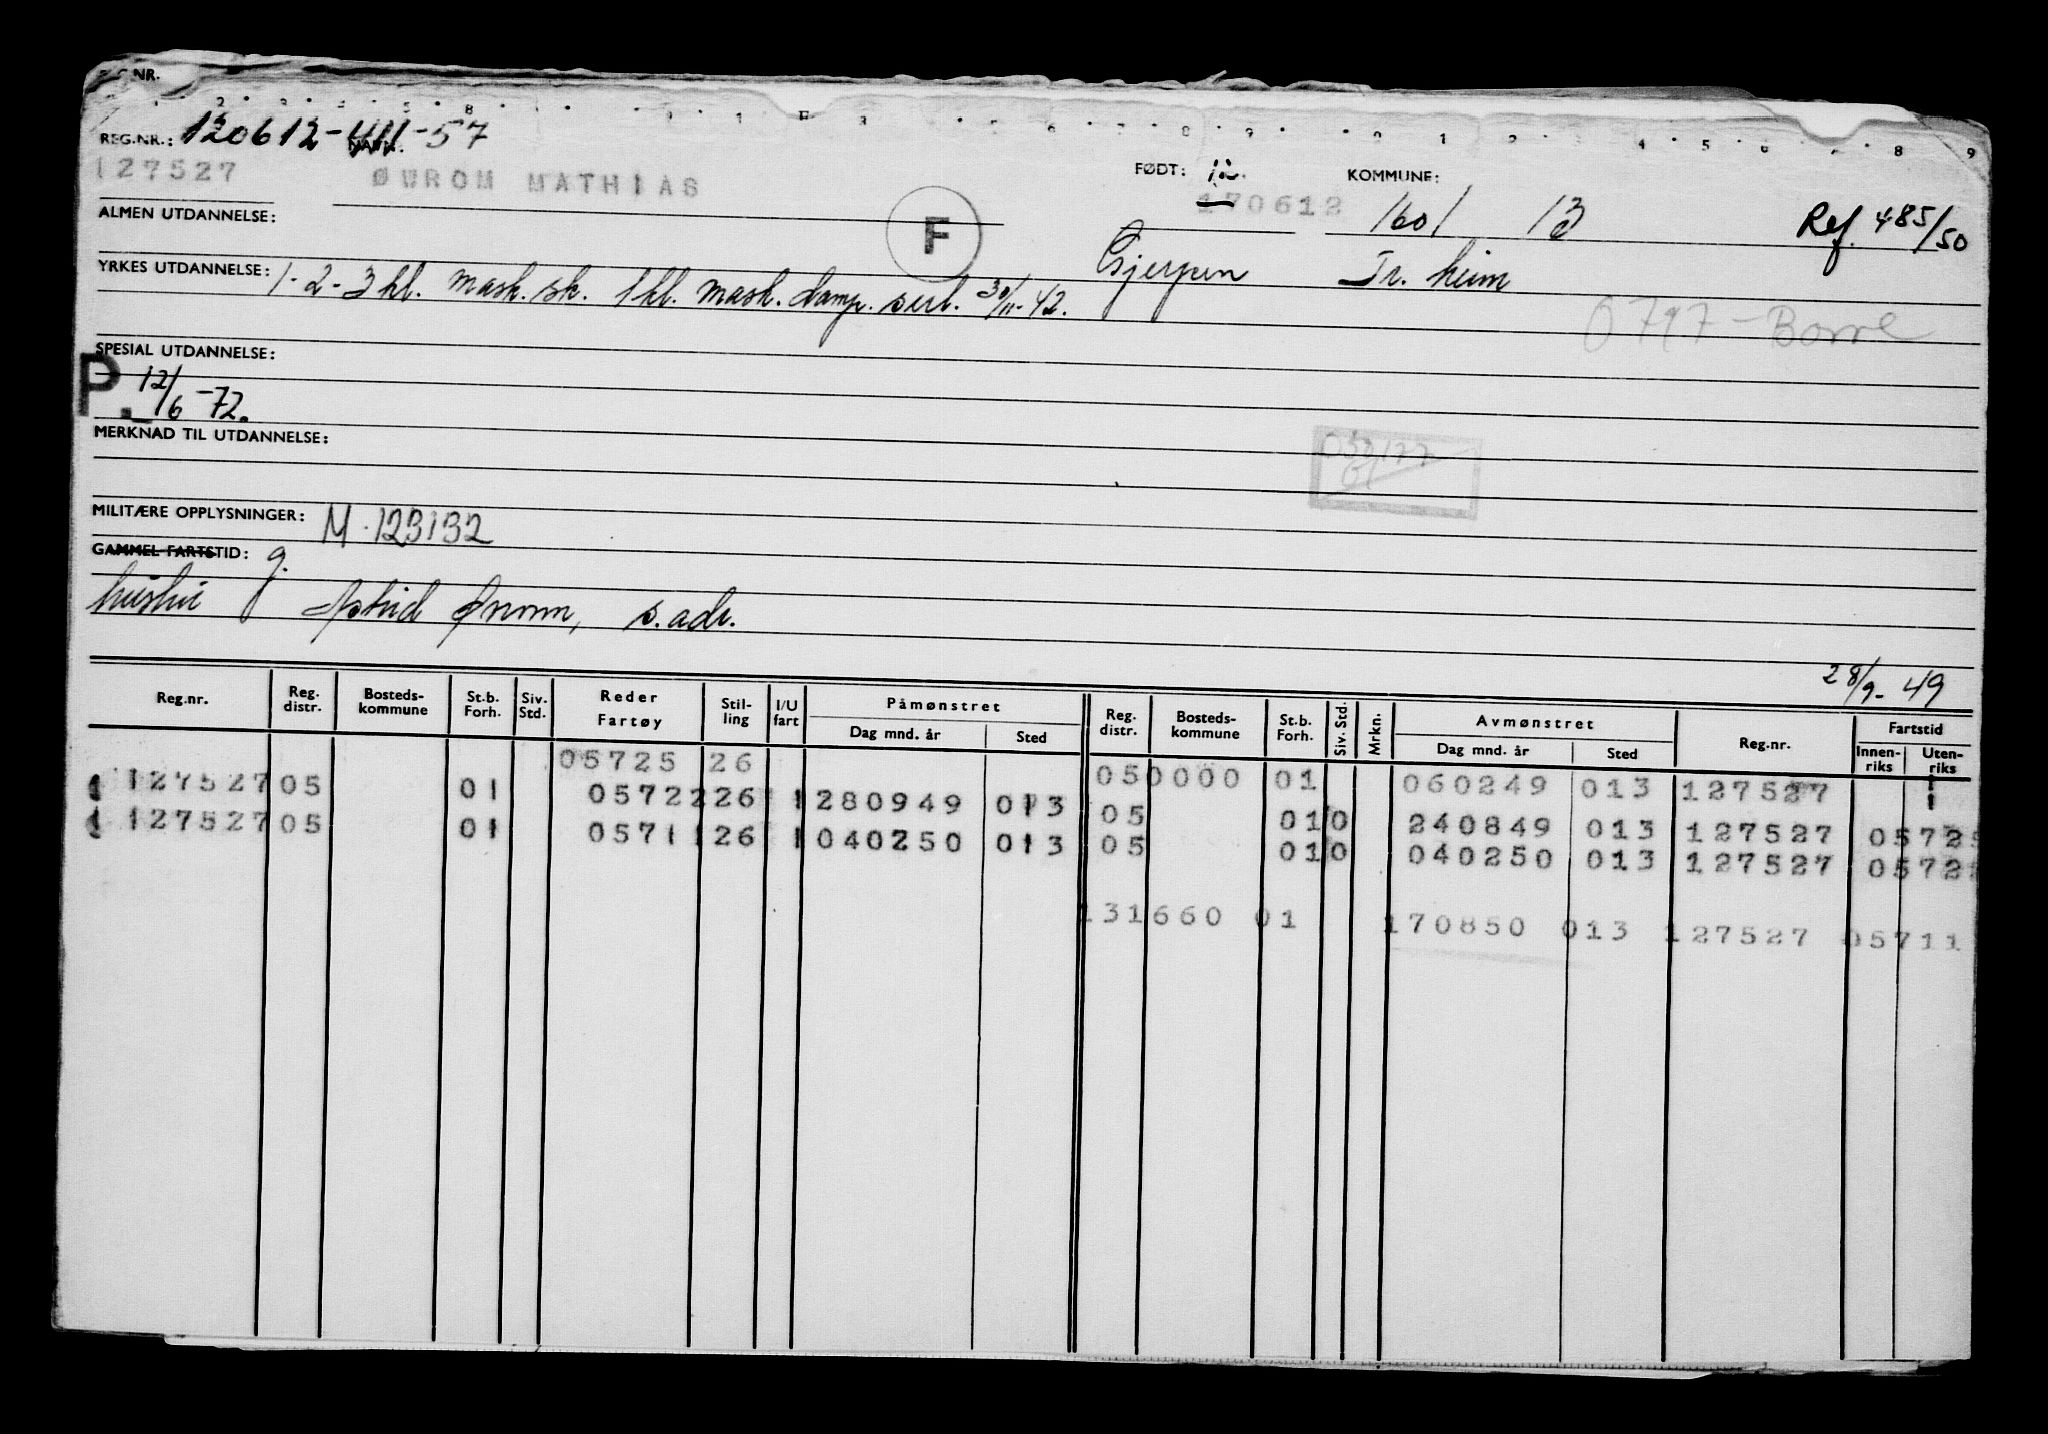 REG.NR.: 120612- -57
127527 ØWROM MATHIAS FØDT: 12. 170612 KOMMUNE: 1601 13 Ref. 485/50
ALMEN UTDANNELSE: F Gjerpen Tr.heim
YRKES UTDANNELSE: 1-2-3 kl. mask. sk. 1 kl. mask. damp. sert. 30/11-42.
0797-Borre
SPESIAL UTDANNELSE:
P. 12/6-72.
MERKNAD TIL UTDANNELSE:
MILITÆRE OPPLYSNINGER: M.123132
GAMMEL FARTSTID: g.
hustru Astrid s.adr.
28/9-49
Reg.nr. Reg. distr. Bosteds-kommune St.b. Forh. Siv. Std. Reder Fartøy Stil-ling I/U fart Påmønstret Dag mnd. år Sted Reg. distr. Bosteds-kommune St.b. Forh. Siv. Std. Mrkn. Avmønstret Dag mnd. år Sted Reg.nr. Fartstid Innen-riks Uten-riks
05725 26 050000 01 060249 013 127527
1 127527 05 01 05722 26 1 280949 013 05 01 0 240849 013 127527 05725
1 127527 05 01 05711 26 1 040250 013 05 01 0 040250 013 127527 05722
131660 01 170850 013 127527 05711